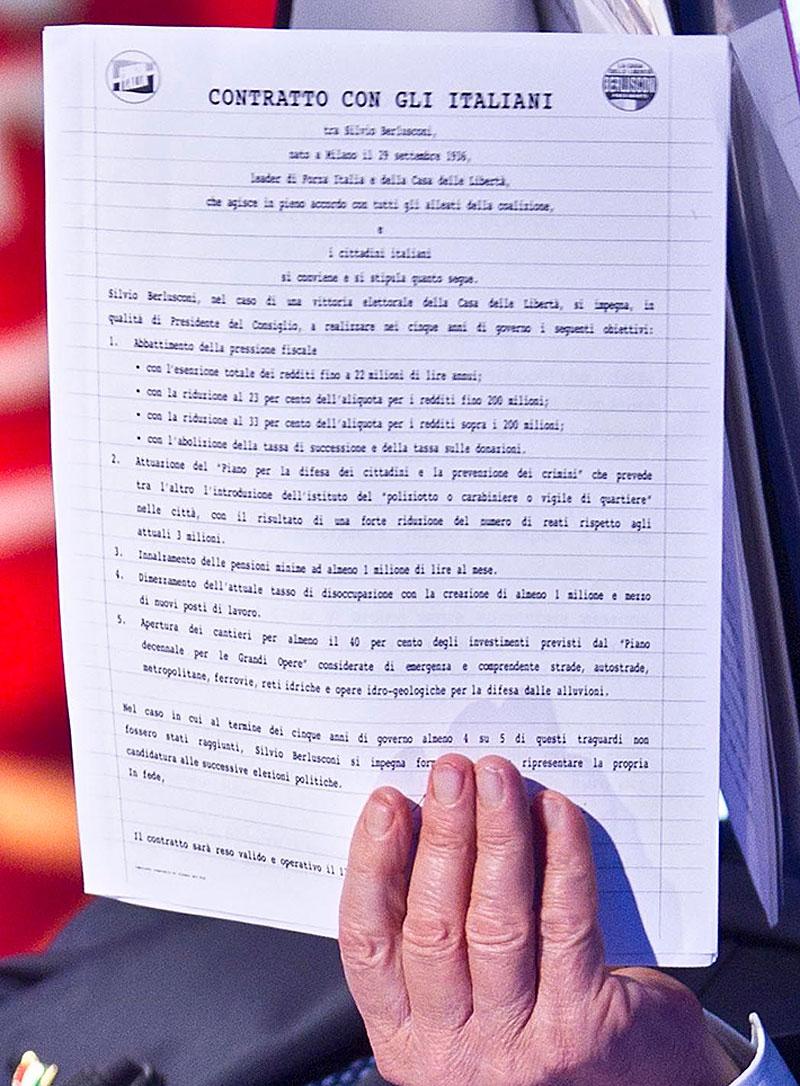 CONTRATTO CON GLI ITALIANI
BERLUSCONI
tra Silvio Berlusconi,
nato a Milano il 29 settembre 1936,
leader di Forza Italia e della Casa delle Libertà,
che agisce in pieno accordo con tutti gli alleati della coalizione,
e
i cittadini italiani
si conviene e si stipula quanto segue.
Silvio Berlusconi, nel caso di una vittoria elettorale della Casa delle Libertà, si impegna, in
qualità di Presidente del Consiglio, a realizzare nei cinque anni di governo i seguenti obiettivi:
1. Abbattimento della pressione fiscale
• con l'esenzione totale dei redditi fino a 22 milioni di lire annui;
• con la riduzione al 23 per cento dell'aliquota per i redditi fino 200 milioni;
• con la riduzione al 33 per cento dell'aliquota per i redditi sopra i 200 milioni;
• con l'abolizione della tassa di successione e della tassa sulle donazioni.
2. Attuazione del "Piano per la difesa dei cittadini e la prevenzione dei crimini" che prevede
tra l'altro l'introduzione dell'istituto del "poliziotto o carabiniere o vigile di quartiere"
nelle città, con il risultato di una forte riduzione del numero di reati rispetto agli
attuali 3 milioni.
3. Innalzamento delle pensioni minime ad almeno 1 milione di lire al mese.
4. Dimezzamento dell'attuale tasso di disoccupazione con la creazione di almeno 1 milione e mezzo
di nuovi posti di lavoro.
5. Apertura dei cantieri per almeno il 40 per cento degli investimenti previsti dal "Piano
decennale per le Grandi Opere" considerate di emergenza e comprendente strade, autostrade,
metropolitane, ferrovie, reti idriche e opere idro-geologiche per la difesa dalle alluvioni.
Nel caso in cui al termine dei cinque anni di governo almeno 4 su 5 di questi traguardi non
fossero stati raggiunti, Silvio Berlusconi si impegna ripresentare la propria
candidatura alle successive elezioni politiche.
In fede,
Il contratto sarà reso valido e operativo il